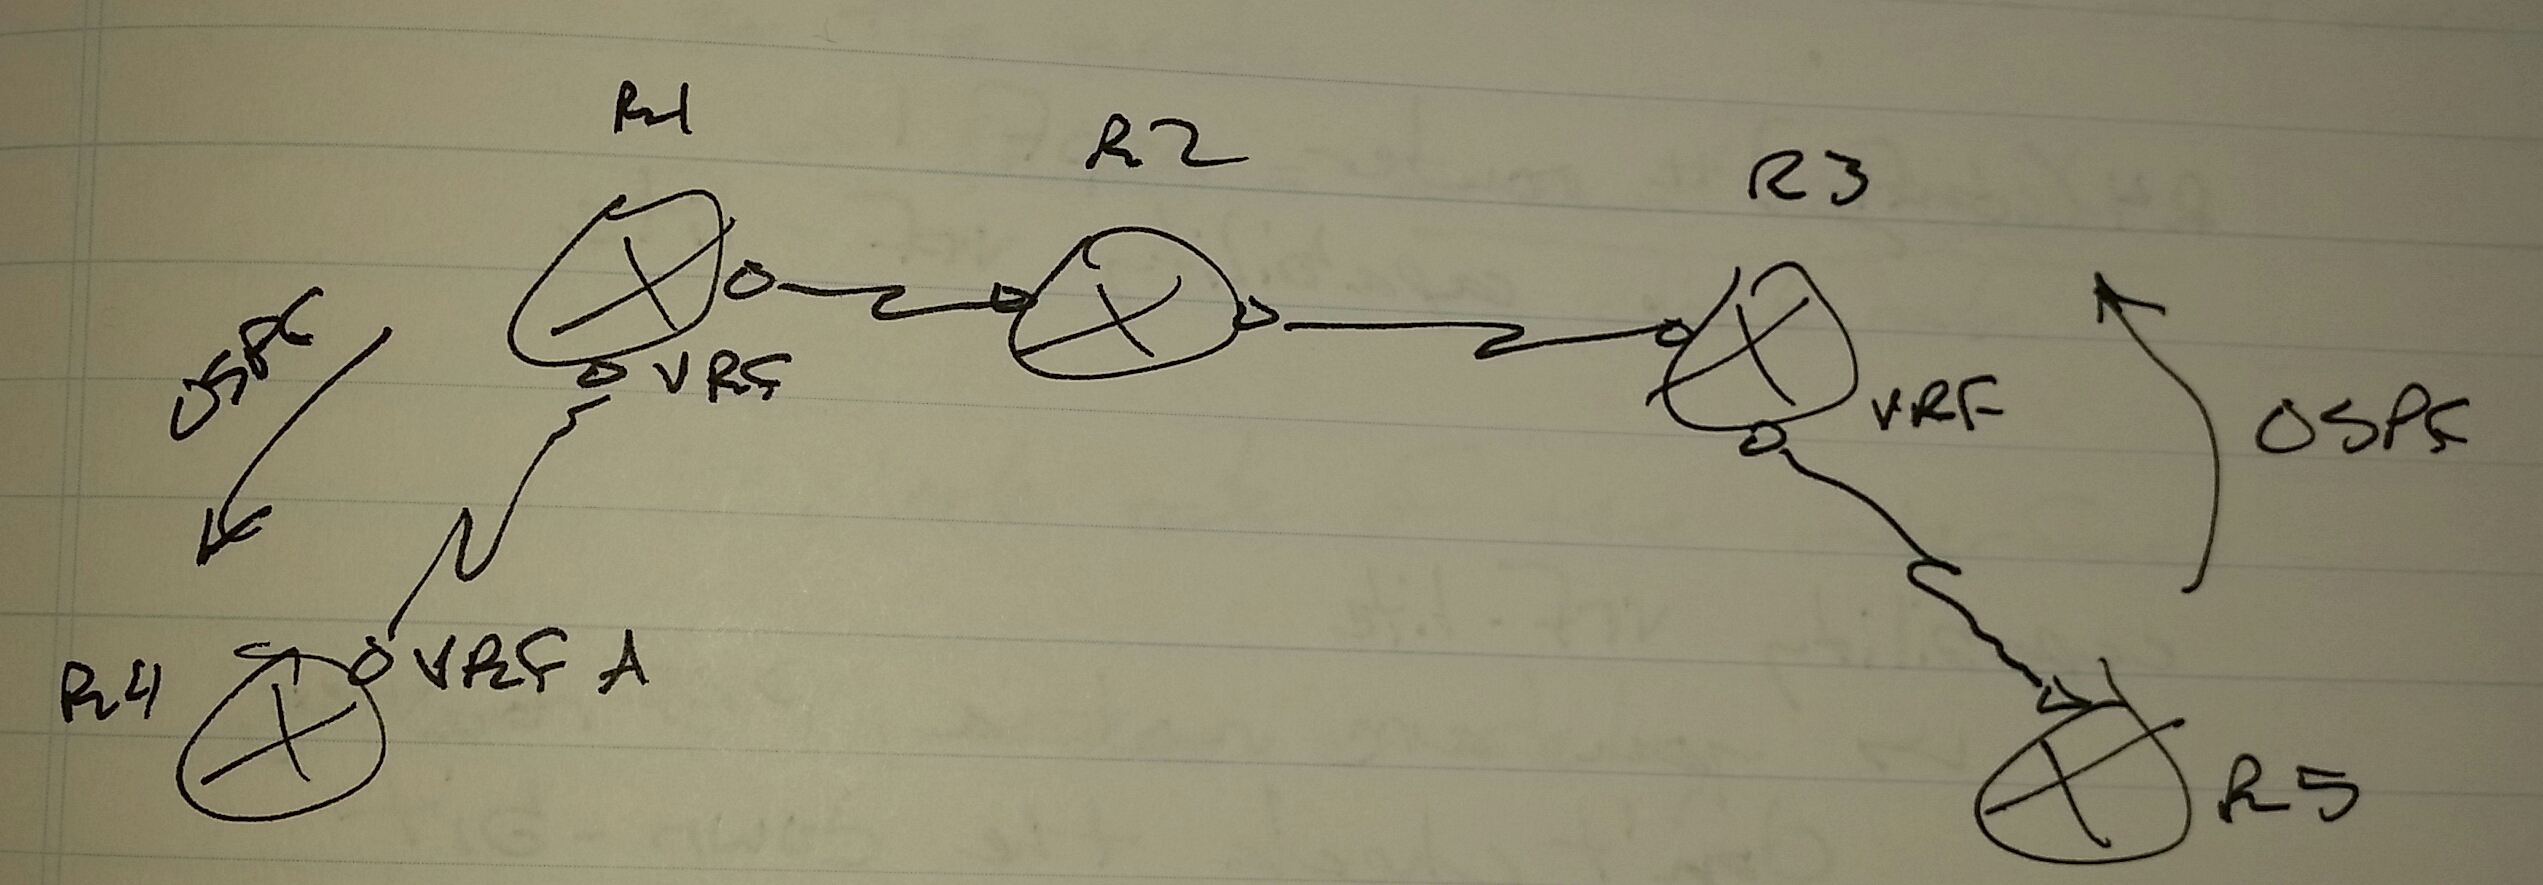 R1
R2
R3
OSPF
VRF
VRF
OSPF
R4
VRF A
R5